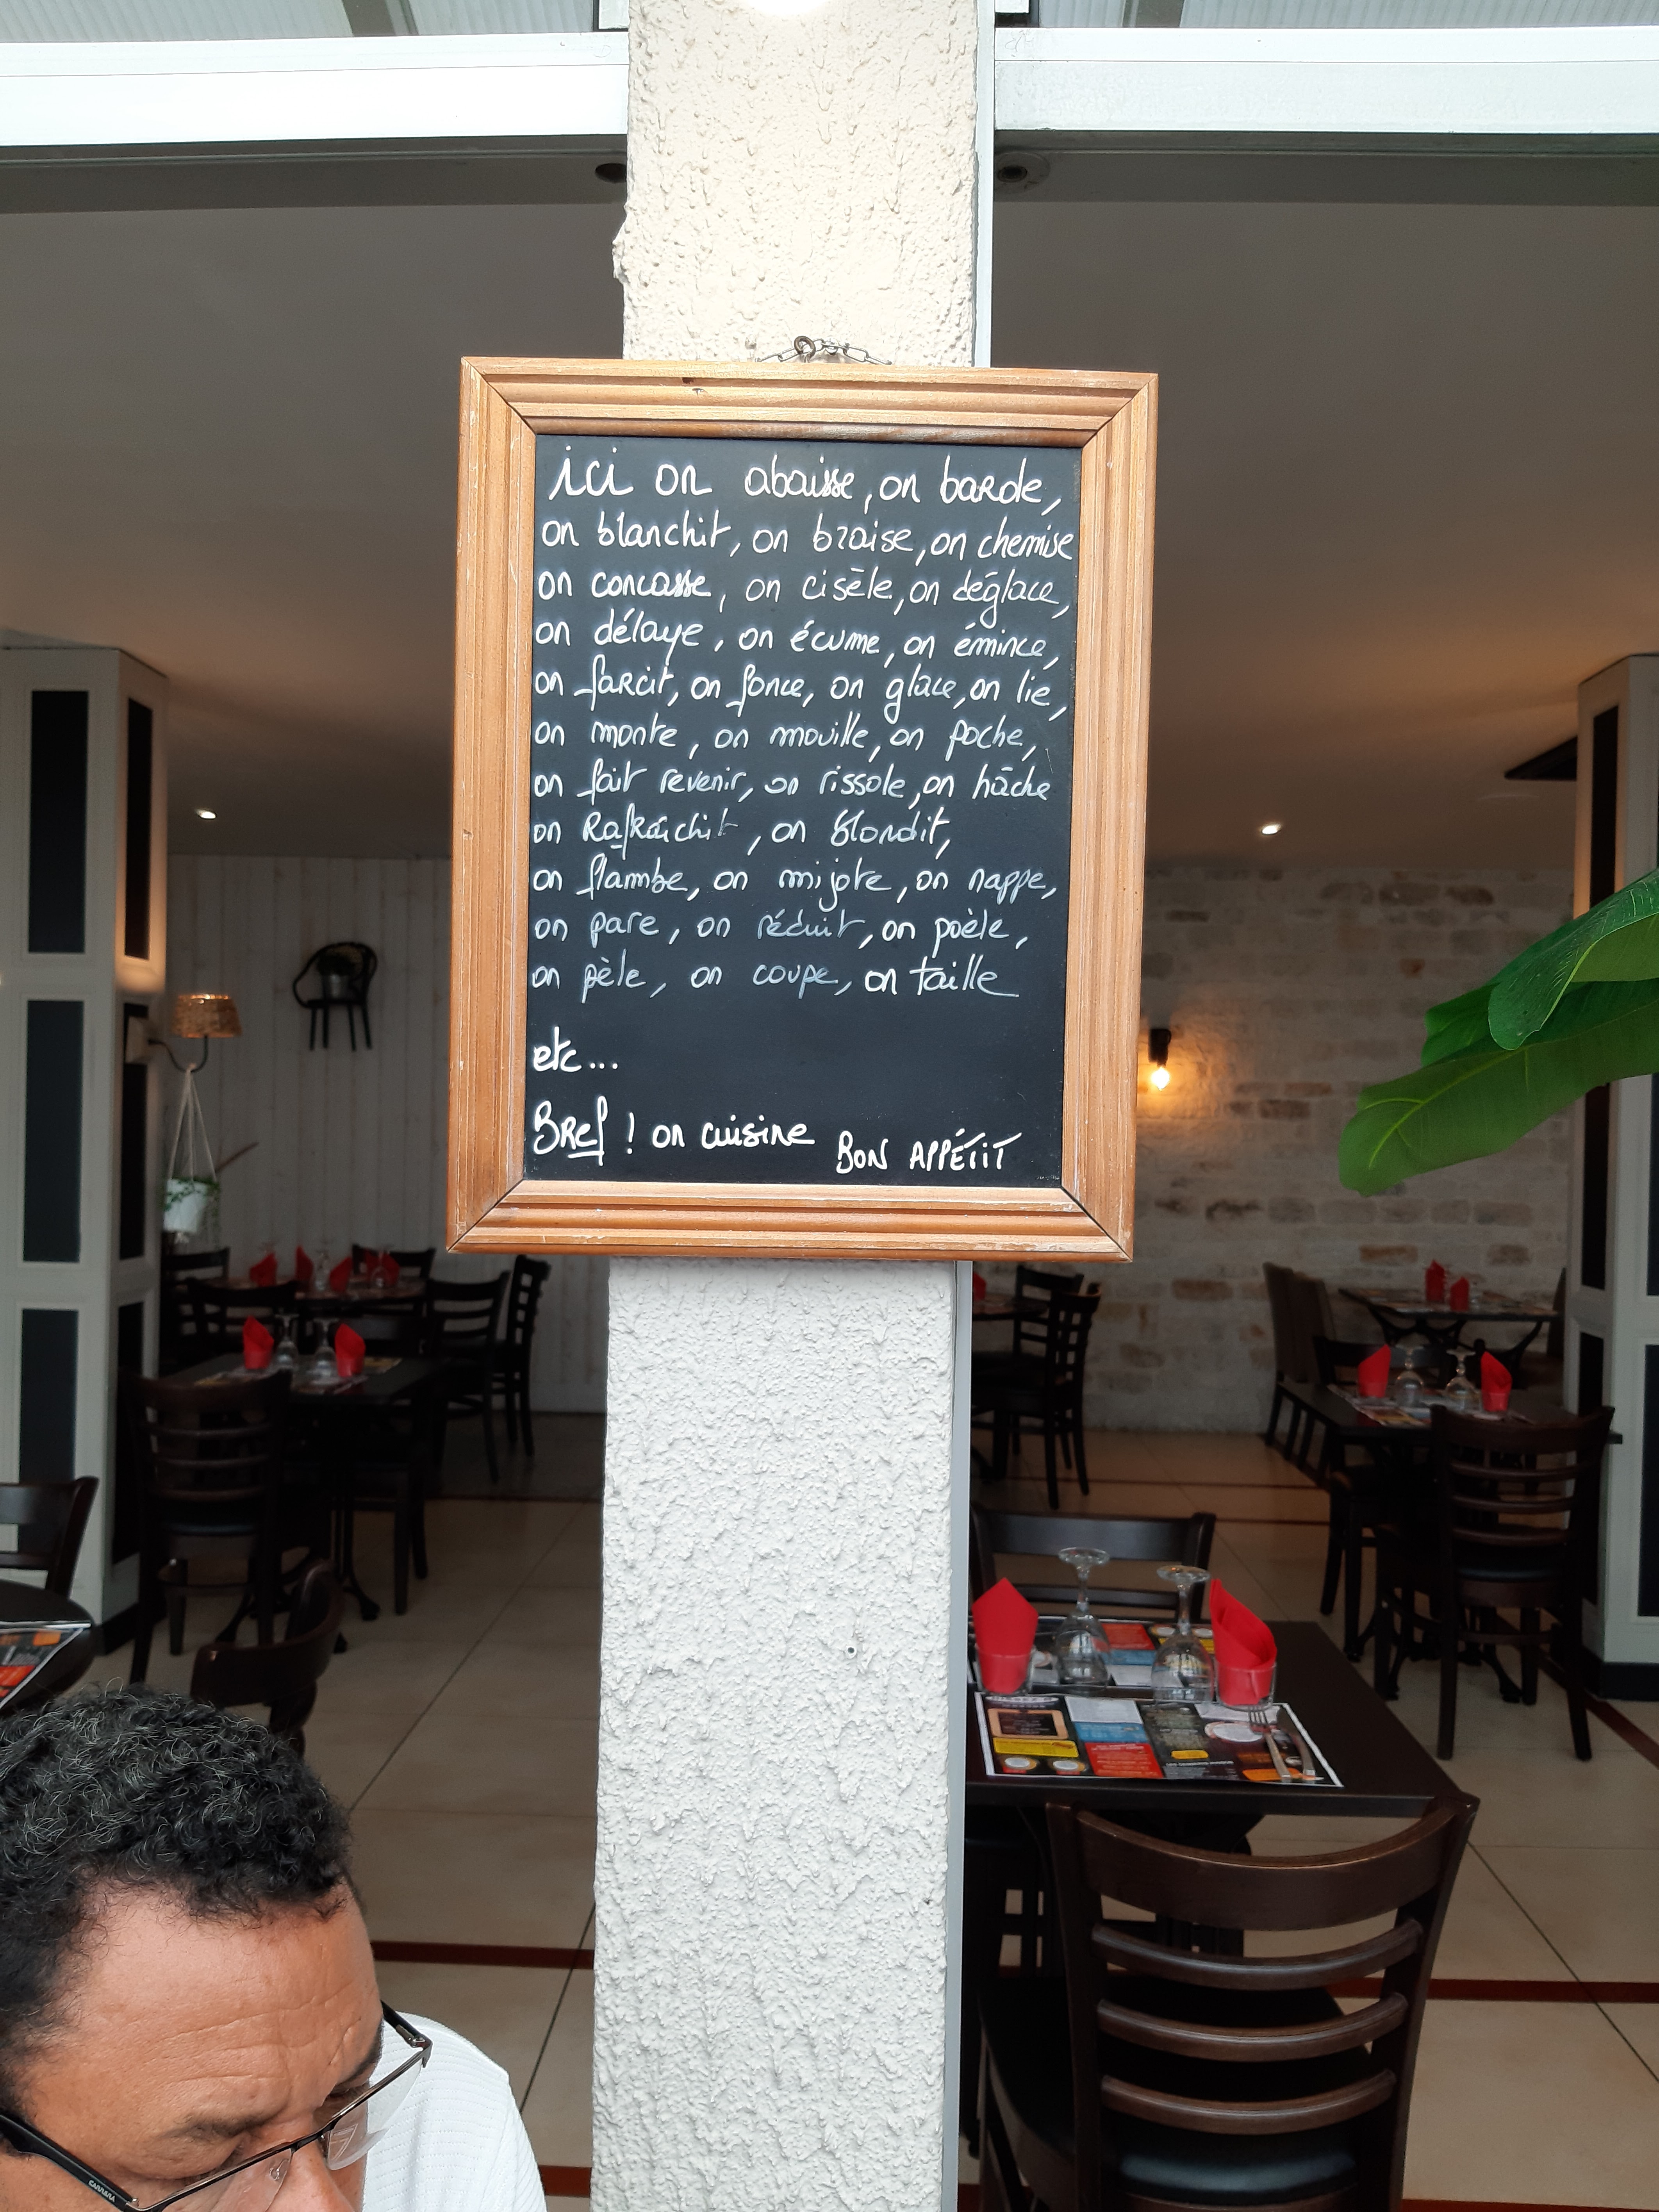 ici on abaisse, on barde,
on blanchit, on braise, on chemise
on concasse, on cisèle, on déglace,
on délaye, on écume, on émince,
on farcit, on fonce, on glace, on lie,
on monte, on mouille, on poche,
on fait revenir, on rissole, on hâche
on Rafraîchit, on blondit,
on flambe, on mijote, on nappe,
on pare, on réduit, on poèle,
on pèle, on coupe, on taille
etc...
BRef ! on cuisine BON APPÉTIT
CARRERA